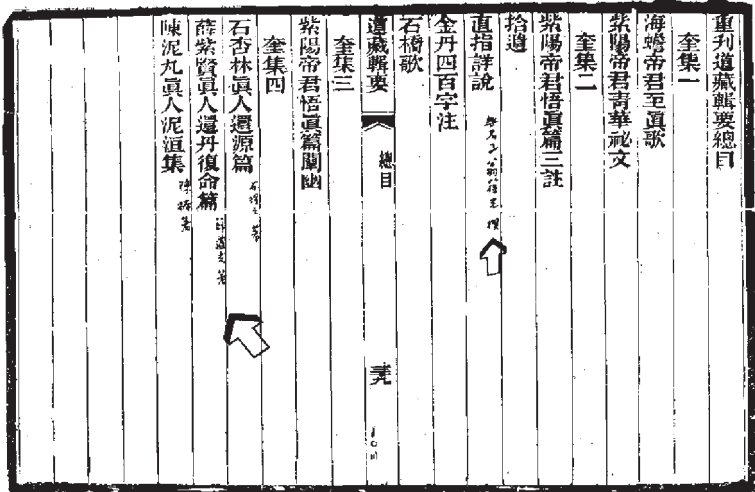 重刋道藏輯要總目
奎集一
海蟾帝君至眞歌
紫陽帝君青華祕文
奎集二
紫陽帝君悟眞篇三註
拾遺
直指詳說
金丹四百字注
石橋歌
道藏輯要
總目
奎集三
紫陽帝君悟眞篇闡幽
奎集四
石杏林眞人還源篇
薛紫賢眞人還丹復命篇
陳泥丸眞人泥洹集